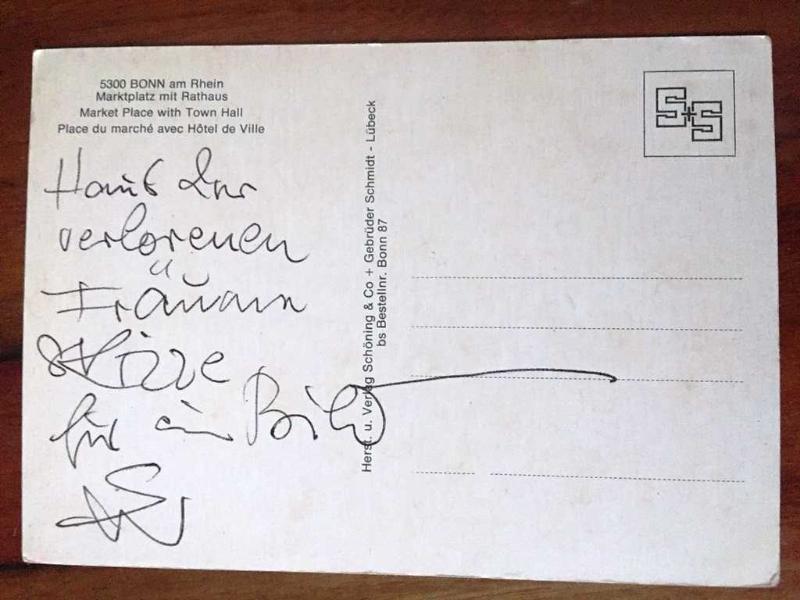 5300 BONN am Rhein
Marktplatz mit Rathaus
Market Place with Town Hall
Place du marché avec Hôtel de Ville
Haus der
verlorenen
Träumen
Skizze
für ein Bild
Herst. u. Verlag Schöning & Co + Gebrüder Schmidt - Lübeck
bs Bestellnr. Bonn 87
S+S